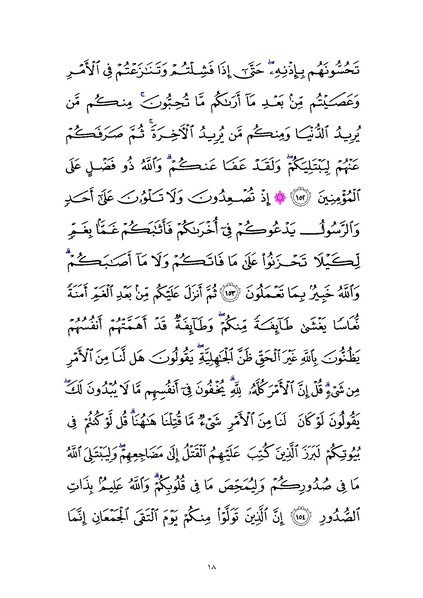 تَحُسُّونَهُم بِإِذْنِهِۦۖ حَتَّىٰٓ إِذَا فَشِلْتُمْ وَتَنَـٰزَعْتُمْ فِى ٱلْأَمْرِ
وَعَصَيْتُم مِّنۢ بَعْدِ مَآ أَرَىٰكُم مَّا تُحِبُّونَۚ مِنكُم مَّن
يُرِيدُ ٱلدُّنْيَا وَمِنكُم مَّن يُرِيدُ ٱلْـَٔاخِرَةَۚ ثُمَّ صَرَفَكُمْ
عَنْهُمْ لِيَبْتَلِيَكُمْۖ وَلَقَدْ عَفَا عَنكُمْۗ وَٱللَّهُ ذُو فَضْلٍ عَلَى
ٱلْمُؤْمِنِينَ ١٥٢ ۞ إِذْ تُصْعِدُونَ وَلَا تَلْوُۥنَ عَلَىٰٓ أَحَدٍ
وَٱلرَّسُولُ يَدْعُوكُمْ فِىٓ أُخْرَىٰكُمْ فَأَثَـٰبَكُمْ غَمًّۢا بِغَمٍّ
لِّكَيْلَا تَحْزَنُوا۟ عَلَىٰ مَا فَاتَكُمْ وَلَا مَآ أَصَـٰبَكُمْۗ
وَٱللَّهُ خَبِيرٌۢ بِمَا تَعْمَلُونَ ١٥٣ ثُمَّ أَنزَلَ عَلَيْكُم مِّنۢ بَعْدِ ٱلْغَمِّ أَمَنَةً
نُّعَاسًا يَغْشَىٰ طَآئِفَةً مِّنكُمْۖ وَطَآئِفَةٌ قَدْ أَهَمَّتْهُمْ أَنفُسُهُمْ
يَظُنُّونَ بِٱللَّهِ غَيْرَ ٱلْحَقِّ ظَنَّ ٱلْجَـٰهِلِيَّةِۖ يَقُولُونَ هَل لَّنَا مِنَ ٱلْأَمْرِ
مِن شَىْءٍۗ قُلْ إِنَّ ٱلْأَمْرَ كُلَّهُۥ لِلَّهِۗ يُخْفُونَ فِىٓ أَنفُسِهِم مَّا لَا يُبْدُونَ لَكَۖ
يَقُولُونَ لَوْ كَانَ لَنَا مِنَ ٱلْأَمْرِ شَىْءٌ مَّا قُتِلْنَا هَـٰهُنَاۗ قُل لَّوْ كُنتُمْ فِى
بُيُوتِكُمْ لَبَرَزَ ٱلَّذِينَ كُتِبَ عَلَيْهِمُ ٱلْقَتْلُ إِلَىٰ مَضَاجِعِهِمْۖ وَلِيَبْتَلِىَ ٱللَّهُ
مَا فِى صُدُورِكُمْ وَلِيُمَحِّصَ مَا فِى قُلُوبِكُمْۗ وَٱللَّهُ عَلِيمٌۢ بِذَاتِ
ٱلصُّدُورِ ١٥٤ إِنَّ ٱلَّذِينَ تَوَلَّوْا۟ مِنكُمْ يَوْمَ ٱلْتَقَى ٱلْجَمْعَانِ إِنَّمَا
١٨